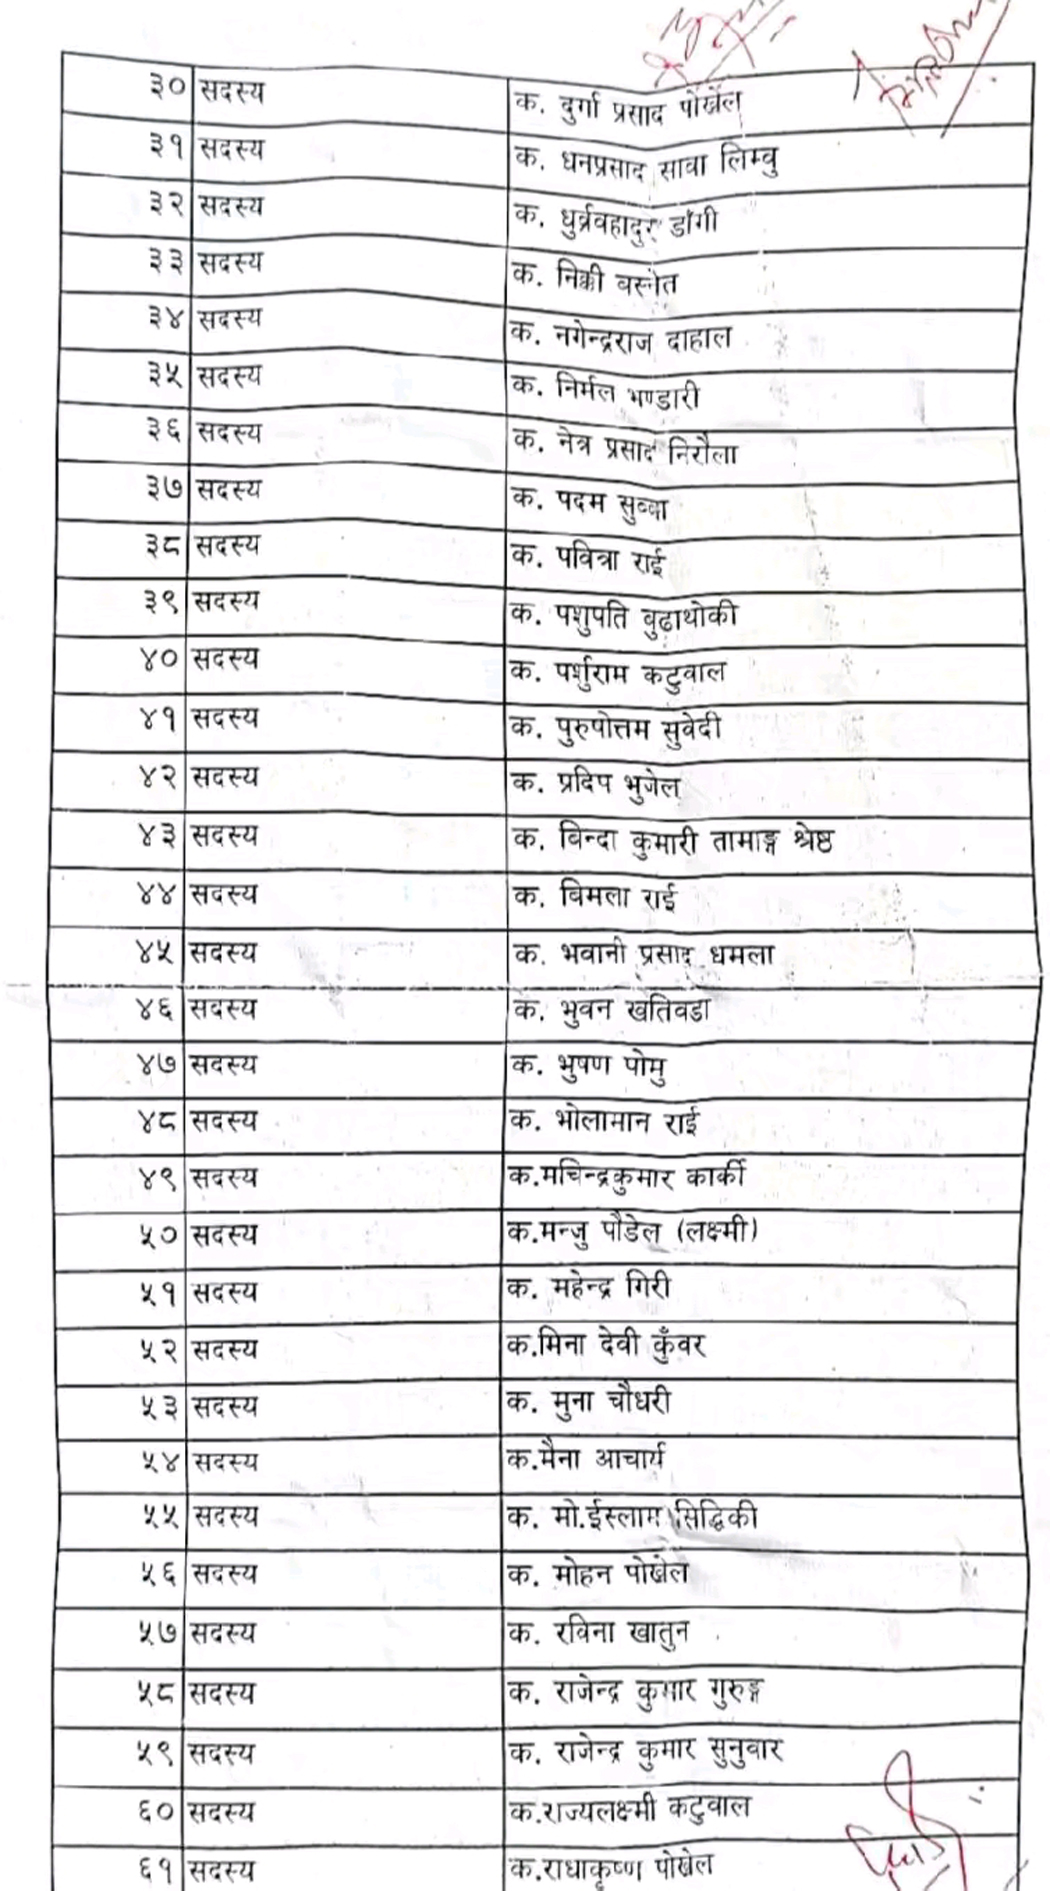 ३० सदस्य क. दुर्गा प्रसाद पोखेल
३१ सदस्य क. धनप्रसाद सावा लिम्वु
३२ सदस्य क. धुर्व्रवहादुर डाँगी
३३ सदस्य क. निक्की वस्नेत
३४ सदस्य क. नगेन्द्रराज दाहाल
३५ सदस्य क. निर्मल भण्डारी
३६ सदस्य क. नेत्र प्रसाद निरौला
३७ सदस्य क. पदम सुव्वा
३८ सदस्य क. पवित्रा राई
३९ सदस्य क. पशुपति वुढाथोकी
४० सदस्य क. पर्शुराम कटुवाल
४१ सदस्य क. पुरुषोत्तम सुवेदी
४२ सदस्य क. प्रदिप भुजेल
४३ सदस्य क. विन्दा कुमारी तामाङ्ग श्रेष्ठ
४४ सदस्य क. विमला राई
४५ सदस्य क. भवानी प्रसाद धमला
४६ सदस्य क. भुवन खतिवडा
४७ सदस्य क. भुषण पोमु
४८ सदस्य क. भोलामान राई
४९ सदस्य क.मचिन्द्रकुमार कार्की
५० सदस्य क.मन्जु पौडेल (लक्ष्मी)
५१ सदस्य क. महेन्द्र गिरी
५२ सदस्य क.मिना देवी कुँवर
५३ सदस्य क. मुना चौधरी
५४ सदस्य क.मैना आचार्य
५५ सदस्य क. मो.ईस्लाम सिद्धिकी
५६ सदस्य क. मोहन पोखेल
५७ सदस्य क. रविना खातुन
५८ सदस्य क. राजेन्द्र कुमार गुरुङ्ग
५९ सदस्य क. राजेन्द्र कुमार सुनुवार
६० सदस्य क.राज्यलक्ष्मी कटुवाल
६१ सदस्य क.राधाकृष्ण पोखेल